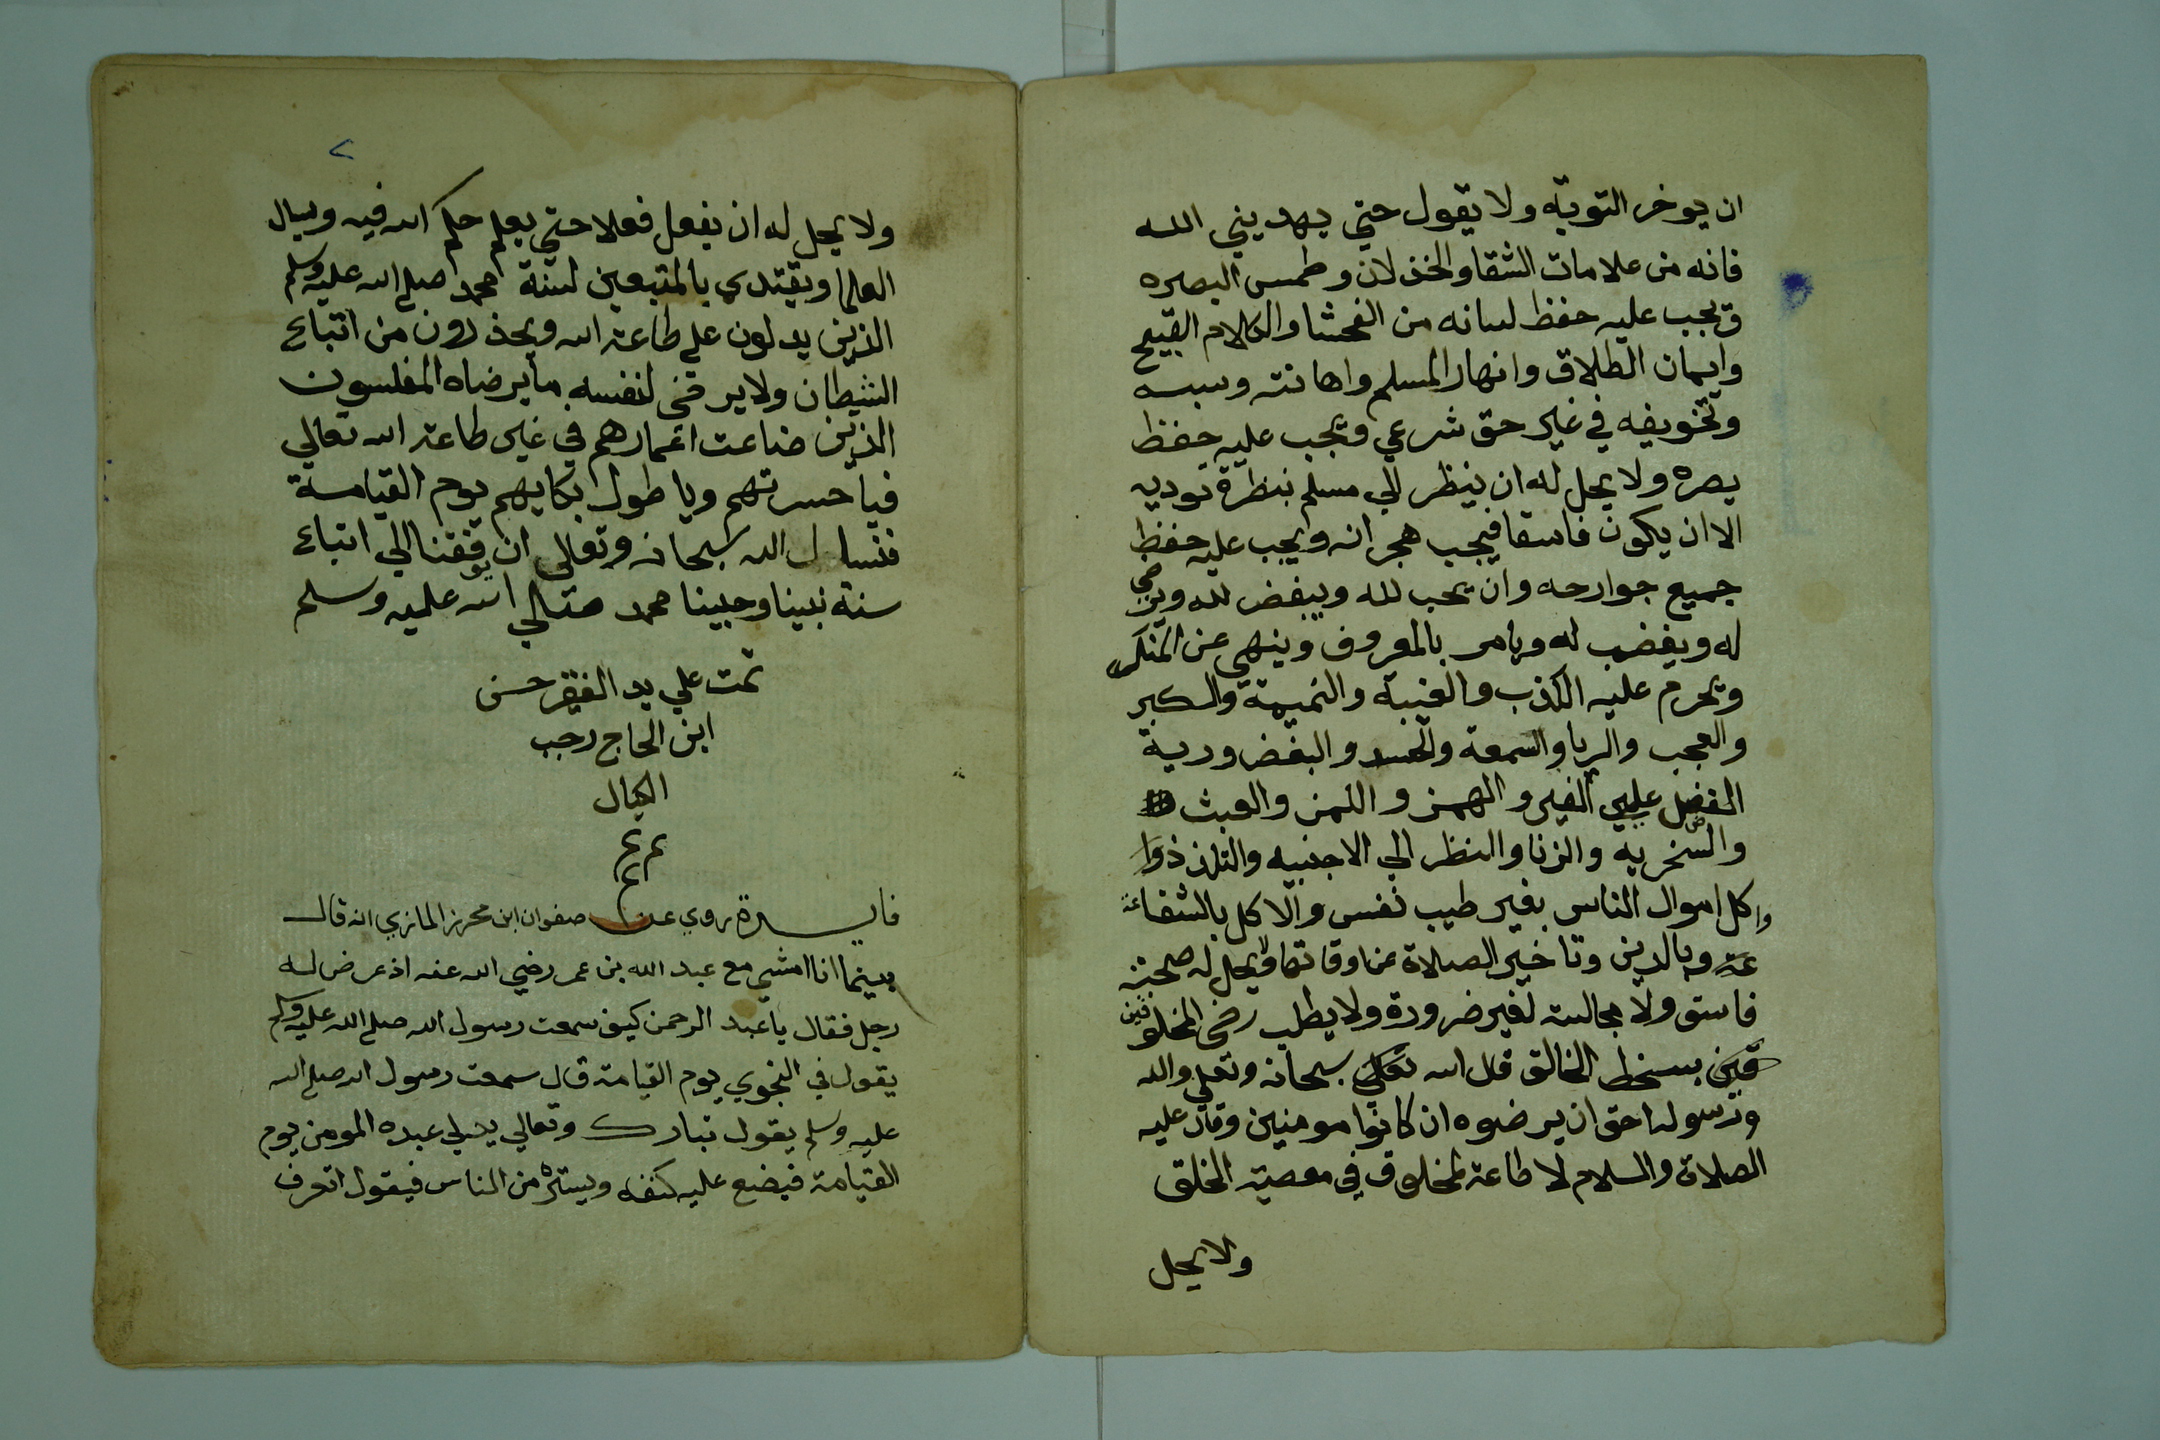 ان يوخر التوبة ولا يقول حتي يهديني الله
فانه من علامات الشقا والخذلان وطمس البصيره
ويجب عليه حفظ لسانه من الفحشا والكلام القبيح
وايمان الطلاق وانهار المسلم واهانته وسبه
وتخويفه في غير حق شرعي ويجب عليه حفظ
بصره ولا يحل له ان ينظر الي مسلم بنظرة توديه
الا ان يكون فاسقا فيجب هجرانه ويجب عليه حفظ
جميع جوارحه وان يحب لله ويبغض لله ويرضي
له ويغضب له ويامر بالمعروف وينهي عن المنكر
ويحرم عليه الكذب والغيبة والنميمة والكبر
والعجب والريا والسمعة والحسد والبغض وروية
الفضل علي الغير والهمز واللمز والعبث
والسخريه والزنا والنظر الي الاجنبيه والتلذذ
واكل اموال الناس بغير طيب نفس والاكل بالشفا
عة وبالدين وتاخير الصلاة عن اوقاتها ولا يحل له صحبته
فاسق ولا مجالسته لغير ضرورة ولا يطلب رضي المخلوقين
بسخط الخالق قال الله سبحانه وتعلي والله
ورسوله احق ان يرضوه ان كانوا مومنين وقال عليه
الصلاة والسلام لا طاعة لمخلوق في معصية الخلق
ولا يحل
٢
ولا يحل له ان يفعل فعلا حتي يعلم حكم الله فيه ويسال
العلما ويقتدي بالمتبعين لسنة محمد صلى الله عليه وسلم
الذين يدلون علي طاعة الله ويحذرون من اتباع
الشيطان ولا يرضي لنفسه ما يرضاه المفلسون
الذين ضاعت اعمارهم في غير طاعة الله تعالي
فيا حسرتهم ويا طول بكايهم يوم القيامة
فنسال الله سبحانه وتعالى ان يوفقنا الي اتباع
سنة نبينا وحبيبنا محمد صتالي الله عليه وسلم
تمت علي يد الفقير حسن
ابن الحاج رجب
الكيال
م م
م
فايـــدة روي عن صفوان ابن محرز المازني انه قال
بينما انا امشي مع عبد الله بن عمر رضي الله عنه اذ عرض له
رجل فقال يا عبد الرحمن كيف سمعت رسول الله صلى الله عليه وسلم
يقول في النجوي يوم القيامة قال سمعت رسول الله صلى الله
عليه وسلم يقول تبارك وتعالي عبده المومن يوم
القيامة فيضع عليه كنفه ويستره من الناس فيقول اتعرف